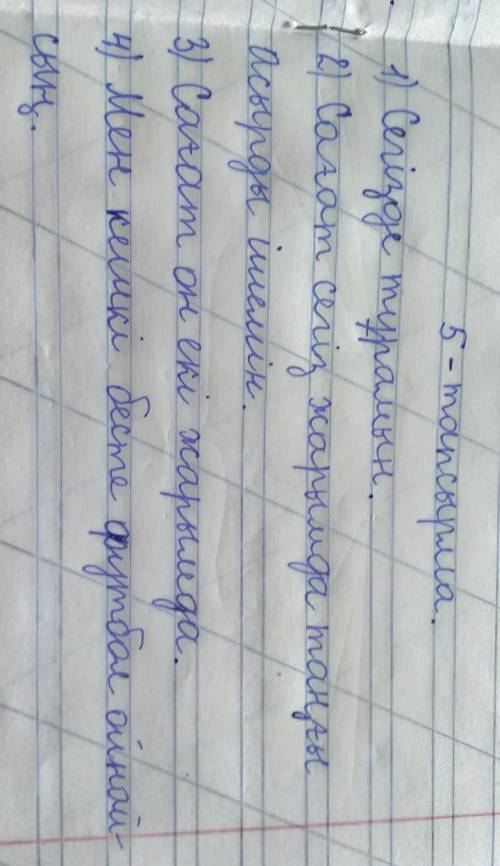 5-тапсырма.
1) Сегізде тұрамын.
2) Сағат сегіз жарымда таңғы
асырды ішемін.
3) Сағат он екі жарымда.
4) Мен кешкі бесте футбол ойнай-
сың.